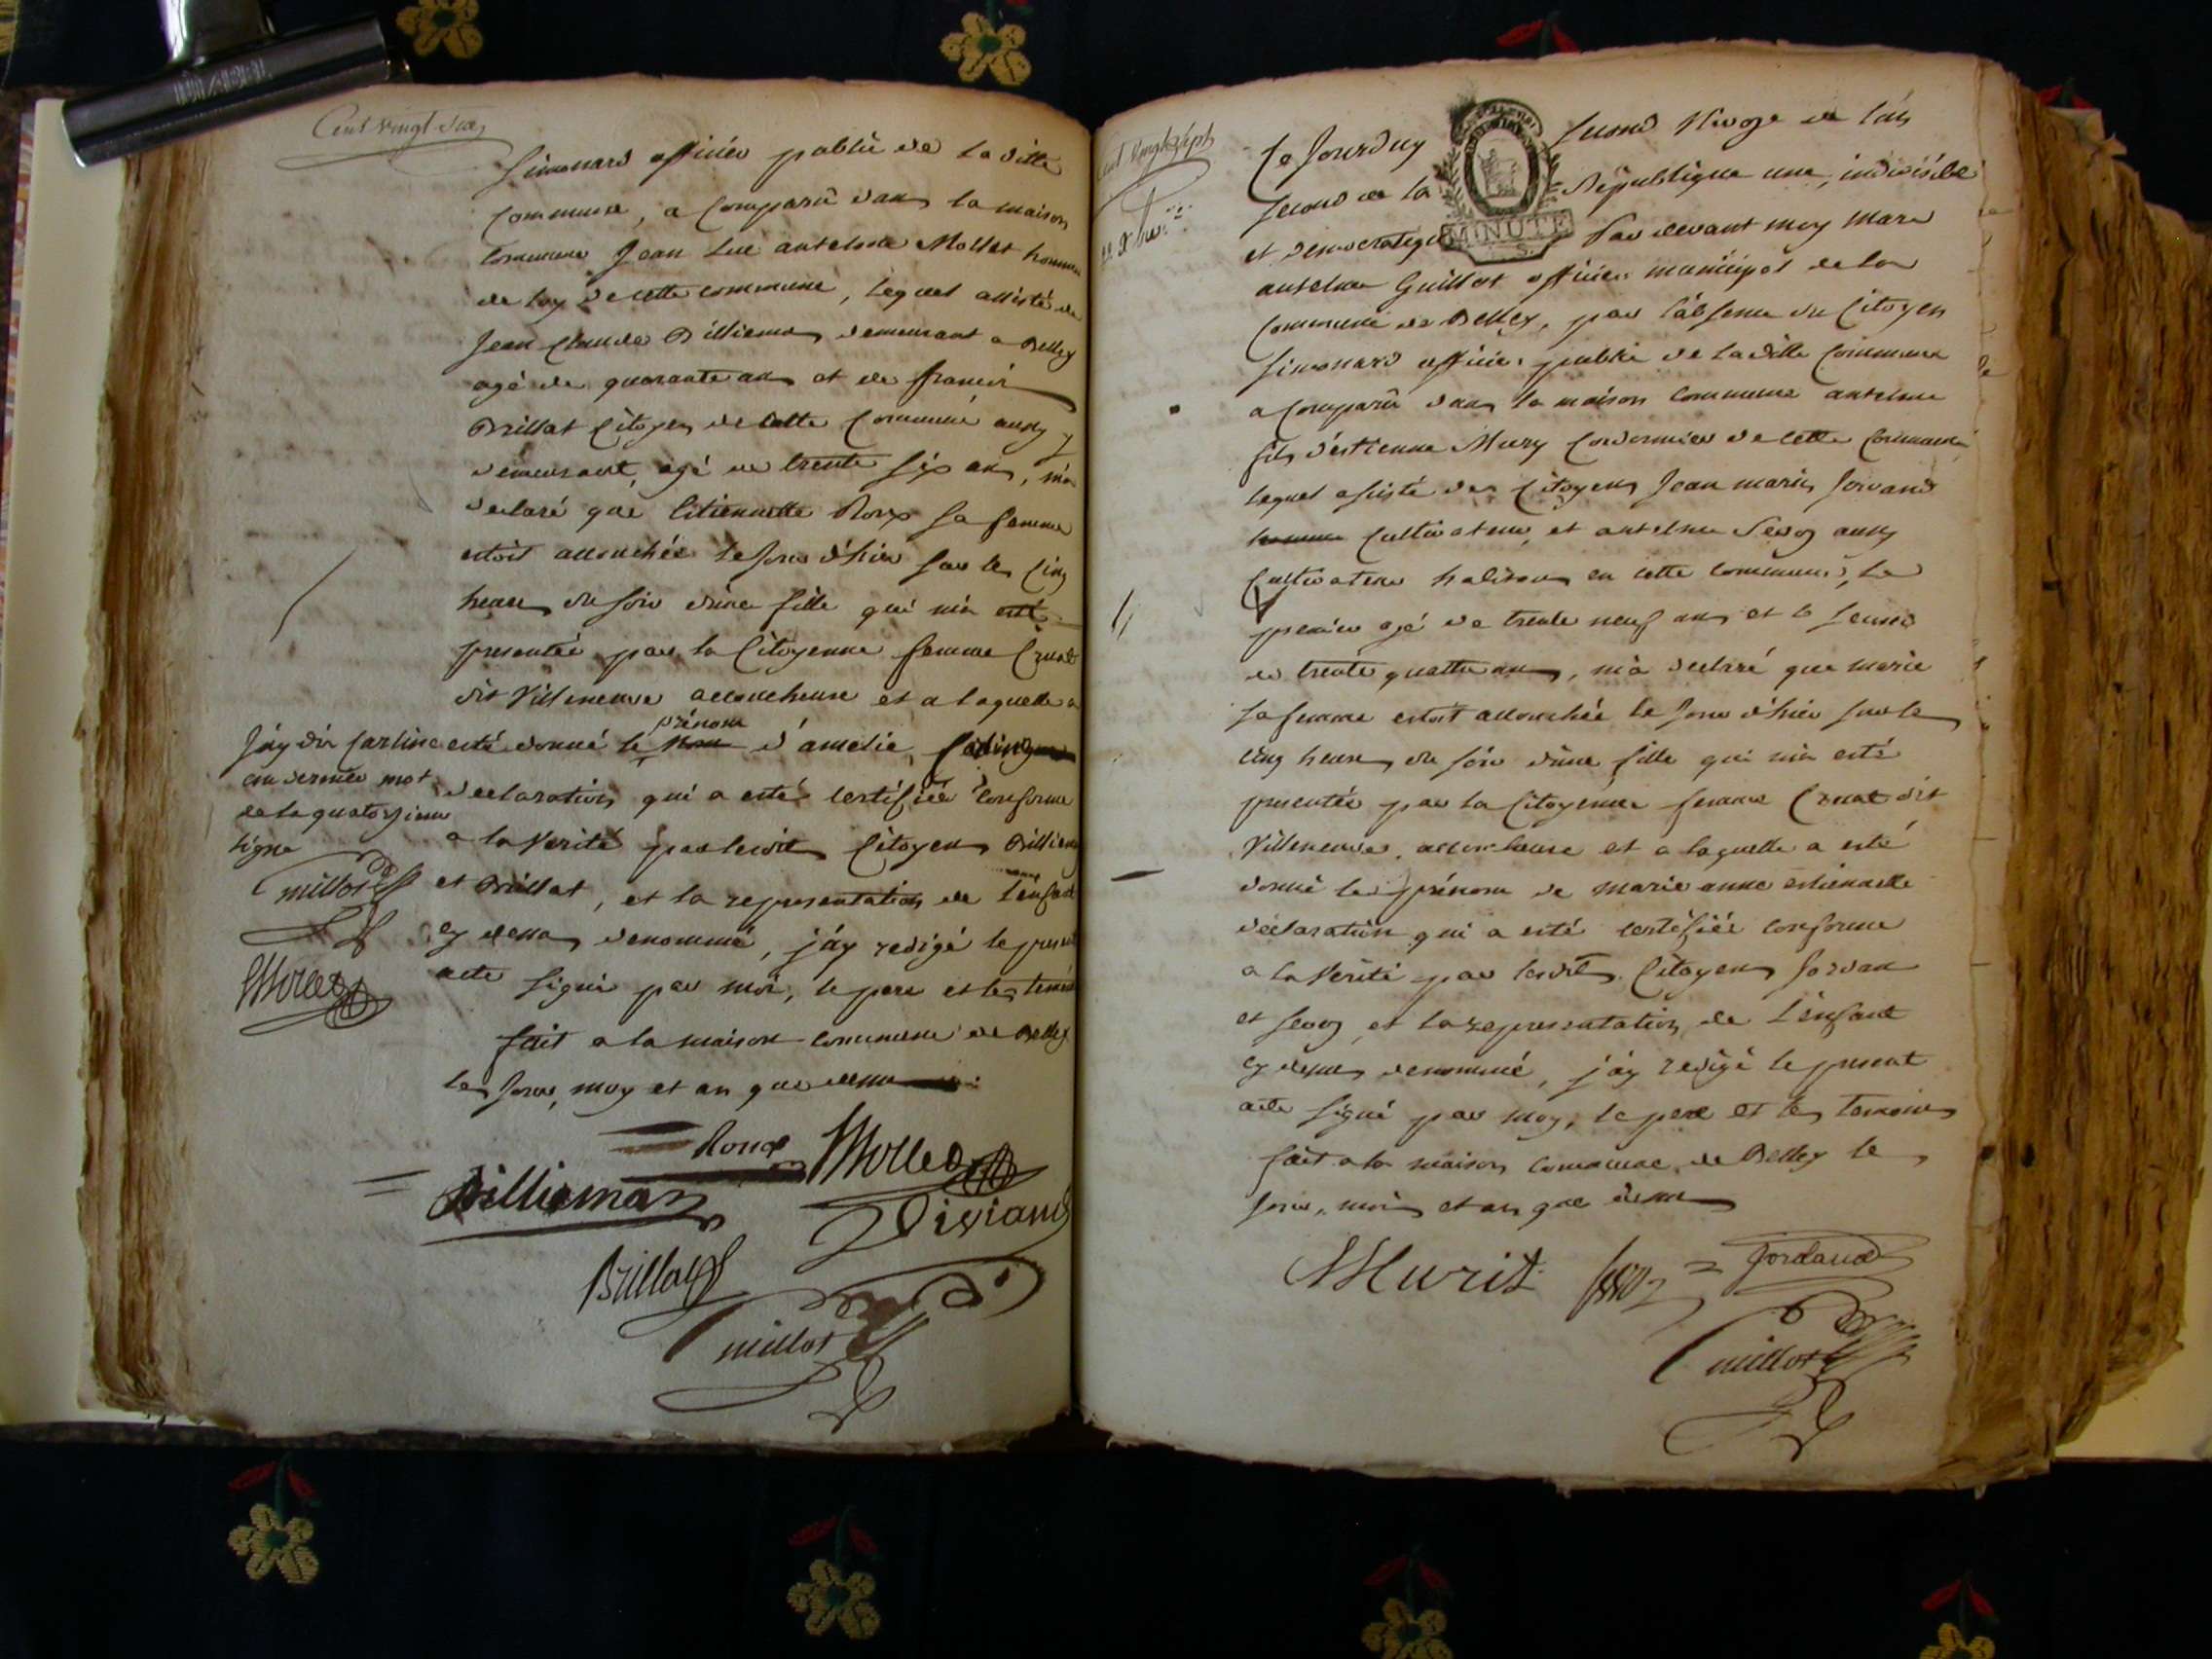 Cent vingt six
Simonard officier public de la ditte
Commune, a Comparû dans la maison
Commune Jean Luc antelme Mollet homme
de loy de cette commune, lequel assisté de
Jean Claude Billiema demeurant a Belley
agé de quarante ans et de francois
Brillat Citoyen de cette Commune aussy y
demeurant, agé de trente six ans, m'a
declaré que Etiennette Roux sa femme
estoit accouchée le jour d'hier sur les Cinq
heures du soir d'une fille qui m'a esté
presentée par la Citoyenne femme Cruat
dit Villeneuve accoucheuse et a laquelle a
esté donné le prénom d'amelie,
declaration qui a esté certifiée conforme
a la Verité par lesdits Citoyens Billiema
et Brillat, et la representation de l'enfant
cy dessus denommé, j'ay redigé le present
acte signé par moi, le pere et les temoins
fait a la maison commune de Belley
les jour, moy et an que dessus
J'ay dit
au dernier mot
de la quatorzieme
ligne
Guillot
Mollet
Roux Mollet
Billiemaz
Brillat
Guillot
Cent vingt sept
Le Jourduy second Nivoze de l'an
second de la République une, indivisible
MINUTE
et democratique Par devant moy Marc
antelme Guillot officier municipal de la
Commune de Belley, par l'absence du Citoyen
Simonard officier public de la ditte Commune
a Comparû dans la maison Commune antelme
fils d'estienne Mury Cordonnier de cette Commune
lequel assisté des Citoyens Jean marie Jordand
homme Cultivateur, et antelme Seroz aussy
Cultivateur habitans en cette commune, le
premier agé de trente neuf ans et le second
de trente quattre ans, m'a declaré que marie
sa femme estoit accouchée le jour d'hier sur les
cinq heures du soir d'une fille qui m'a esté
presentée par la Citoyenne femme Cruat dit
Villeneuve, accoucheuse et a laquelle a esté
donné le prénom de marie anne estiennette
déclaration qui a esté certifiée conforme
a la Verité par lesdits Citoyens Jordan
et Seroz, et la representation de l'enfant
cy dessus denommé, j'ay redigé le present
acte signé par moy, le pere et les temoins
fait a la maison commune de Belley les
jour, mois et an que dessus
Murit Jordand
Guillot